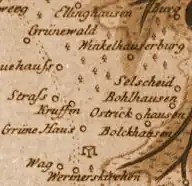 weeg
Ellinghausen
Burg
Grünewald
Winkelhauserburg
uehauſs
Selscheid
Straſs
Bohlhausen
Kruffin
Ostrick
hausen
Grüne Haus
Bolckhausen
Wag
Wermerskirchen